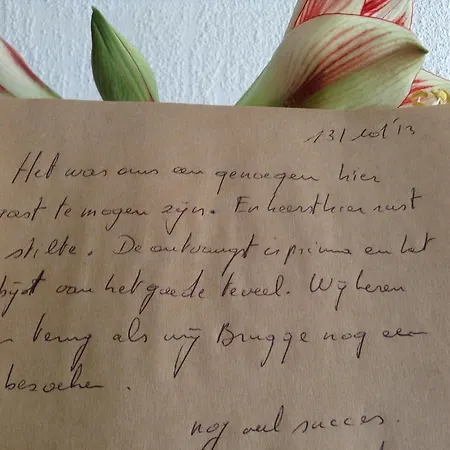 13/10/'13
Het was ons een genoegen hier
gast te mogen zijn. Er heerst hier rust
stilte. De ontvangst is prima en het
ontbijt van het goede te veel. Wij keren
terug als wij Brugge nog een
bezoeken.
nog veel succes.